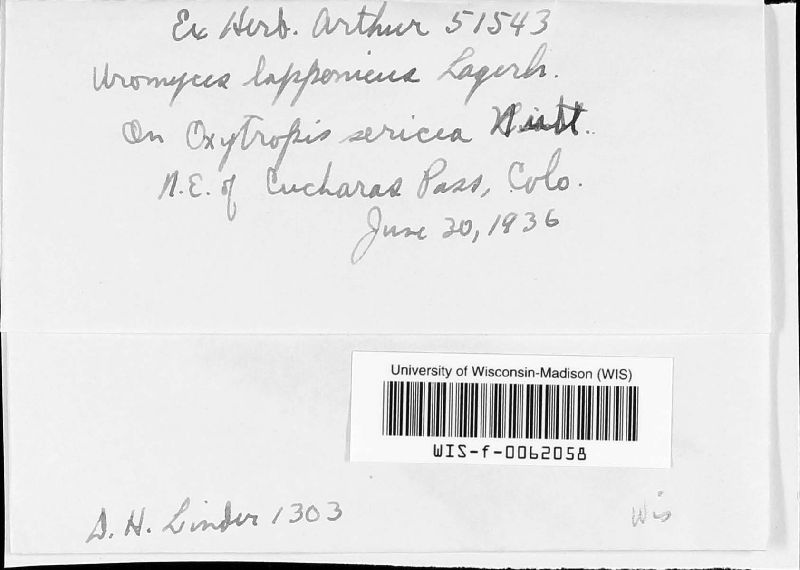 Ex Herb. Arthur 51543
Uromyces lapponicus Lagerh.
On Oxytropis sericea Nutt.
N.E. of Cucharas Pass, Colo.
June 30, 1936
University of Wisconsin-Madison (WIS)
WIS-f-0062058
D. H. Linder 1303
Wis